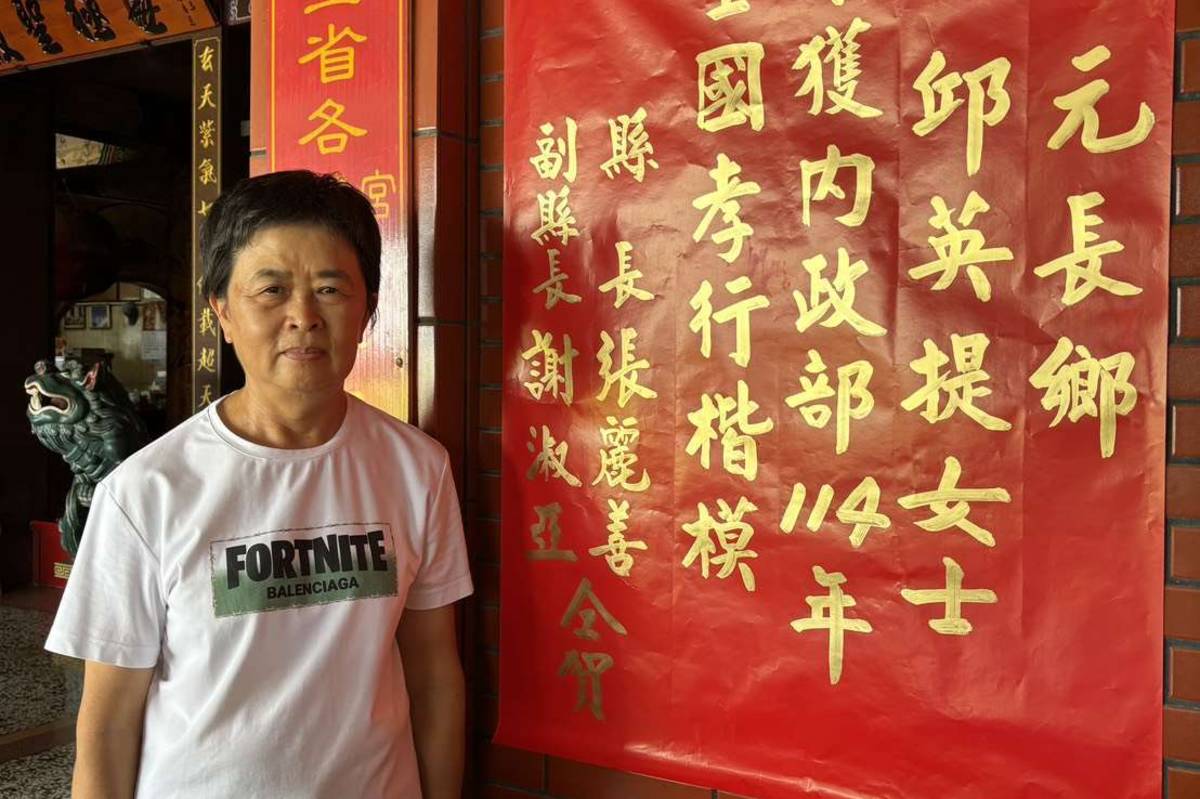 元長鄉
邱英提女士
獲內政部114年
全國孝行楷模
縣長張麗善
副縣長謝淑亞
仝賀
省各
宮
玄天紫氣
載超天
FORTNITE
BALENCIAGA